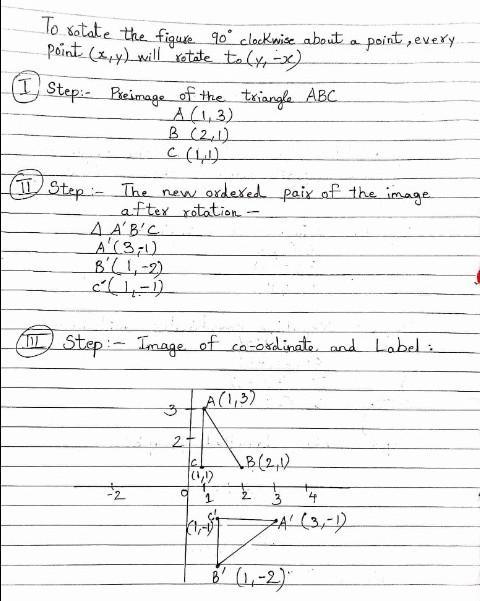 To rotate the figure 90° clockwise about a point, every
point (x,y) will rotate to (y, -x)
I Step:- Preimage of the triangle ABC
A (1, 3)
B (2,1)
C (1,1)
II Step:- The new ordered pair of the image
after rotation -
Δ A'B'C
A'(3,-1)
B'(1,-2)
C'(1,-1)
III Step:- Image of co-ordinate and Label:
A(1,3)
3
2
C
(1,1)
B(2,1)
-2 0 1 2 3 4
C'
(1,-1)
A' (3,-1)
B' (1,-2)